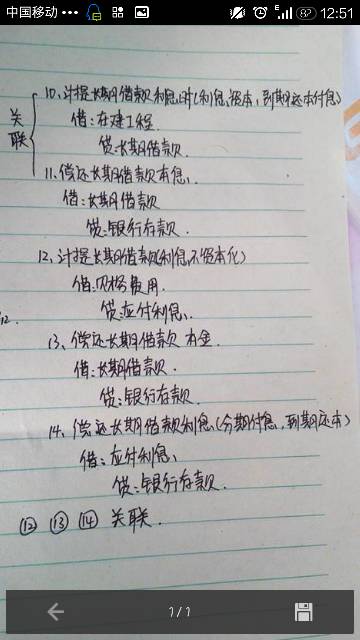 中国移动 82 12:51
10、计提长期借款利息时(利息资本,到期还本付息)
关联
借:在建工程
贷:长期借款.
11、偿还长期借款本息、
借:长期借款
贷:银行存款.
12、计提长期借款(利息不资本化)
借:财务费用.
贷:应付利息、
12.
13、偿还长期借款 本金.
借:长期借款.
贷:银行存款.
14、偿还长期借款利息(分期付息,到期还本)
借:应付利息、
贷:银行存款.
⑫ ⑬ ⑭ 关联.
1/1